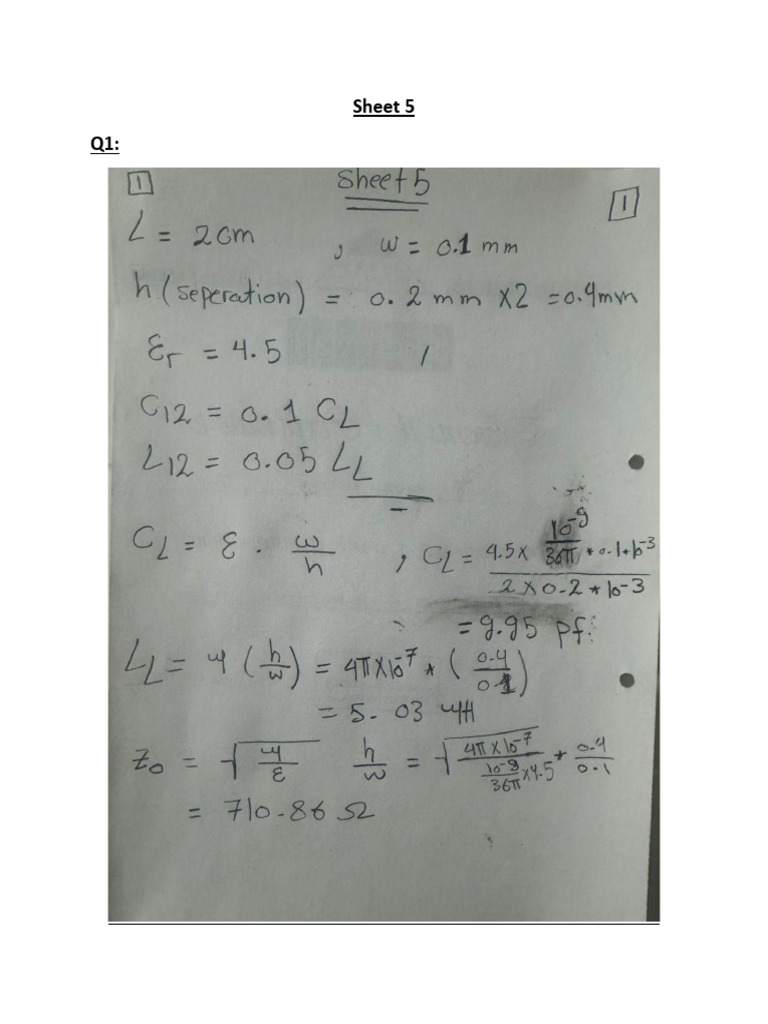 Sheet 5
Q1:
1 Sheet 5 1
L = 2cm , w = 0.1 mm
h (seperation) = 0.2 mm x2 = 0.4mm
εr = 4.5
C12 = 0.1 CL
L12 = 0.05 LL
CL = ε . w/h , CL = 4.5 x 10^-9/36π * 0.1 * 10^-3 / 2 x 0.2 * 10^-3
= 9.95 pf.
LL = μ (h/w) = 4π x 10^-7 * (0.4/0.1)
= 5.03 μH
Z0 = √(μ/ε) h/w = √(4π x 10^-7 / 10^-9/36π x 4.5) * 0.4/0.1
= 710.86 Ω